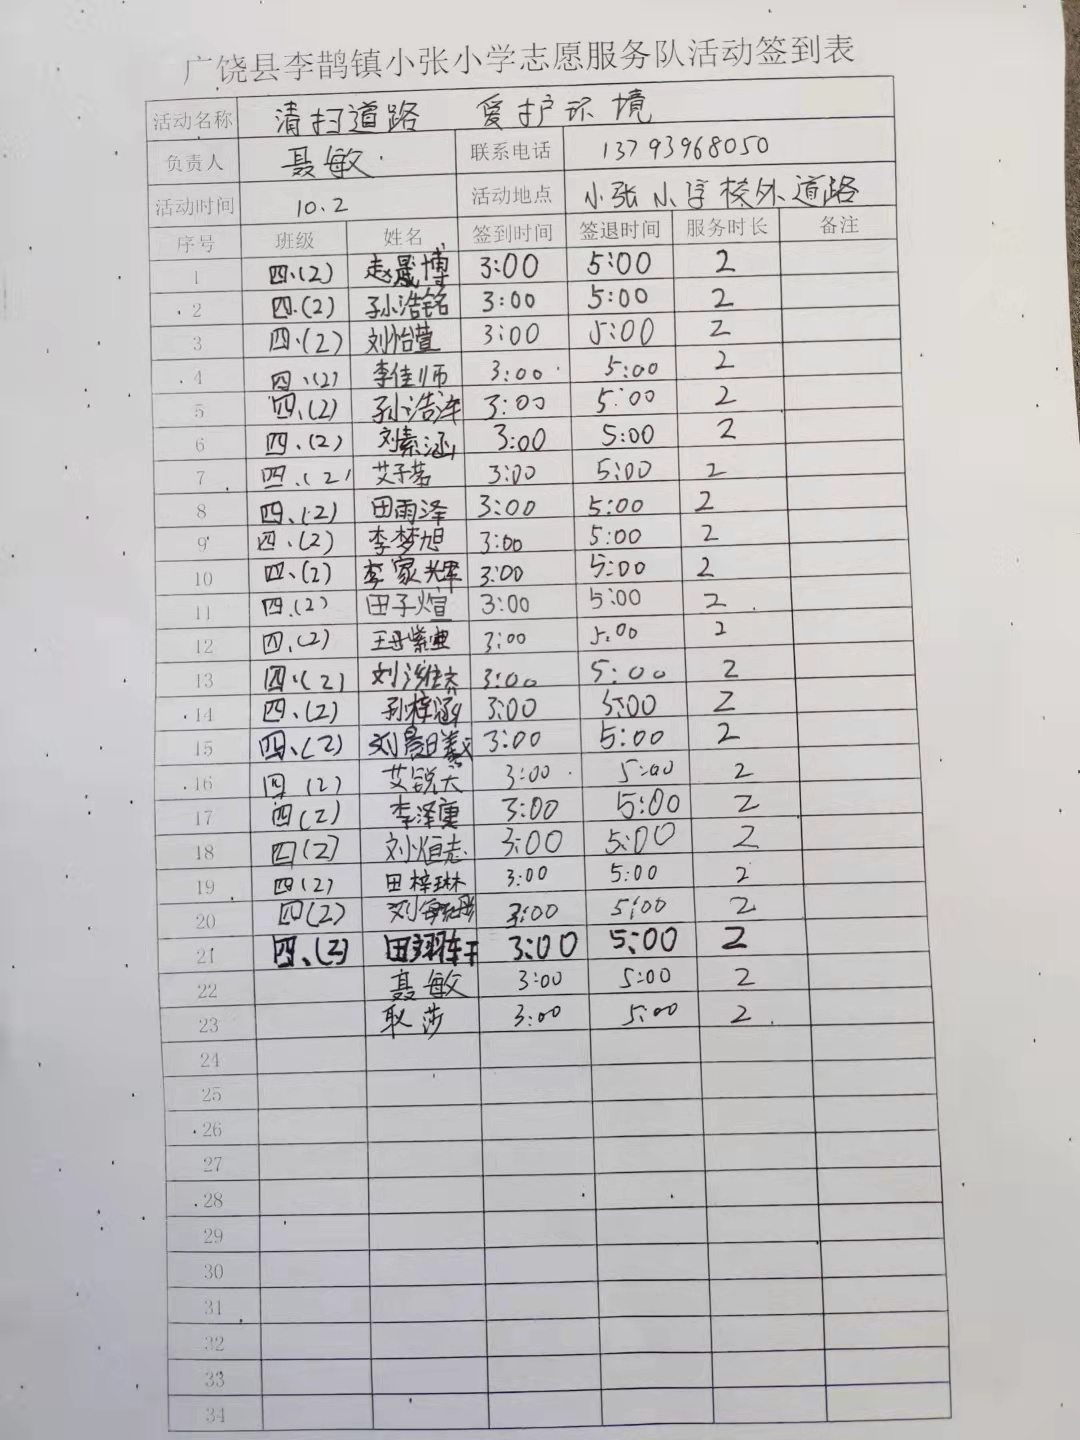 广饶县李鹊镇小张小学志愿服务队活动签到表
活动名称 清扫道路 爱护环境
负责人 聂敏 联系电话 13793968050
活动时间 10.2 活动地点 小张小学校外道路
序号 班级 姓名 签到时间 签退时间 服务时长 备注
1 四.(2) 赵晟博 3:00 5:00 2
2 四.(2) 孙浩铭 3:00 5:00 2
3 四.(2) 刘怡萱 3:00 5:00 2
4 四.(2) 李佳师 3:00 5:00 2
5 四.(2) 孙浩洋 3:00 5:00 2
6 四.(2) 刘素涵 3:00 5:00 2
7 四.(2) 艾子茗 3:00 5:00 2
8 四、(2) 田雨泽 3:00 5:00 2
9 四.(2) 李梦旭 3:00 5:00 2
10 四、(2) 李家辉 3:00 5:00 2
11 四.(2) 田子煊 3:00 5:00 2
12 四.(2) 3:00 5:00 2
13 四.(2) 刘 3:00 5:00 2
14 四.(2) 孙梓涵 3:00 5:00 2
15 四、(2) 刘晨曦 3:00 5:00 2
16 四(2) 艾锐天 3:00 5:00 2
17 四(2) 李泽重 3:00 5:00 2
18 四(2) 刘恒志 3:00 5:00 2
19 四(2) 田梓琳 3:00 5:00 2
20 四(2) 刘 3:00 5:00 2
21 四、(2) 田翔轩 3:00 5:00 2
22 聂敏 3:00 5:00 2
23 耿莎 3:00 5:00 2
24
25
26
27
28
29
30
31
32
33
34